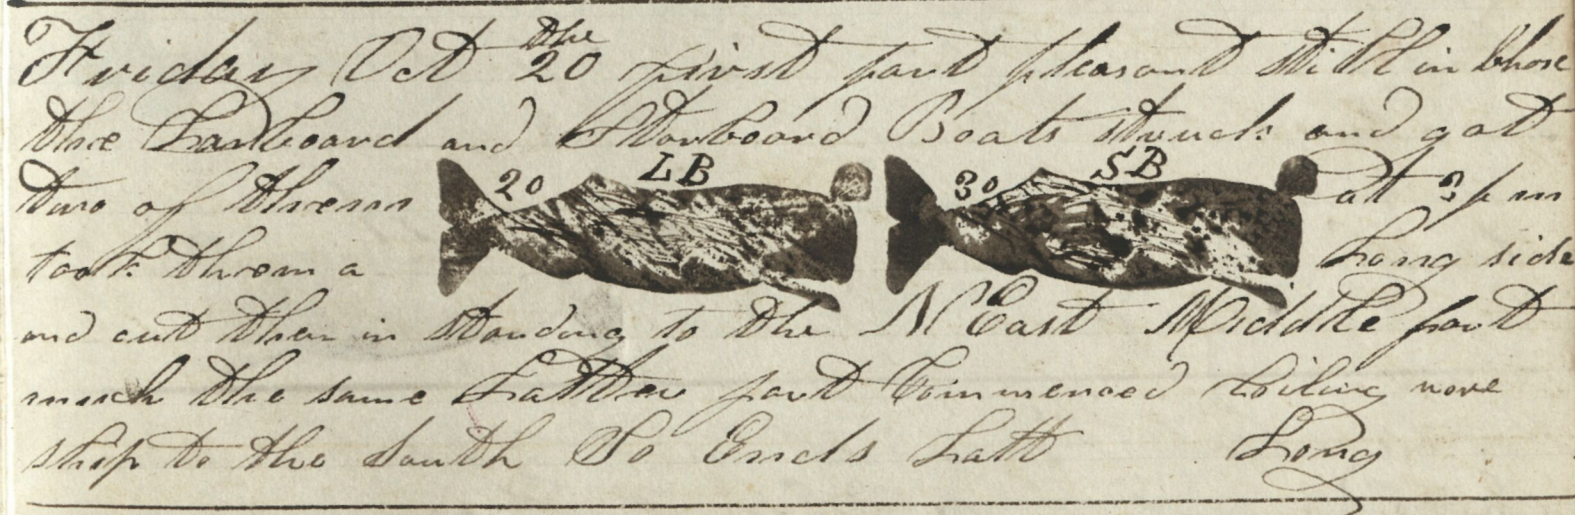 Friday Oct the 20 first part pleasant still in Chase
the Larboard and Starboard Boats struck and got
two of threm 20 LB 30 SB at 3 pm
took throm a Long side
and cut them in standing to the N East Middle part
much the same Latter part Commenced Boiling wore
ship to the South So Ends Latt Long